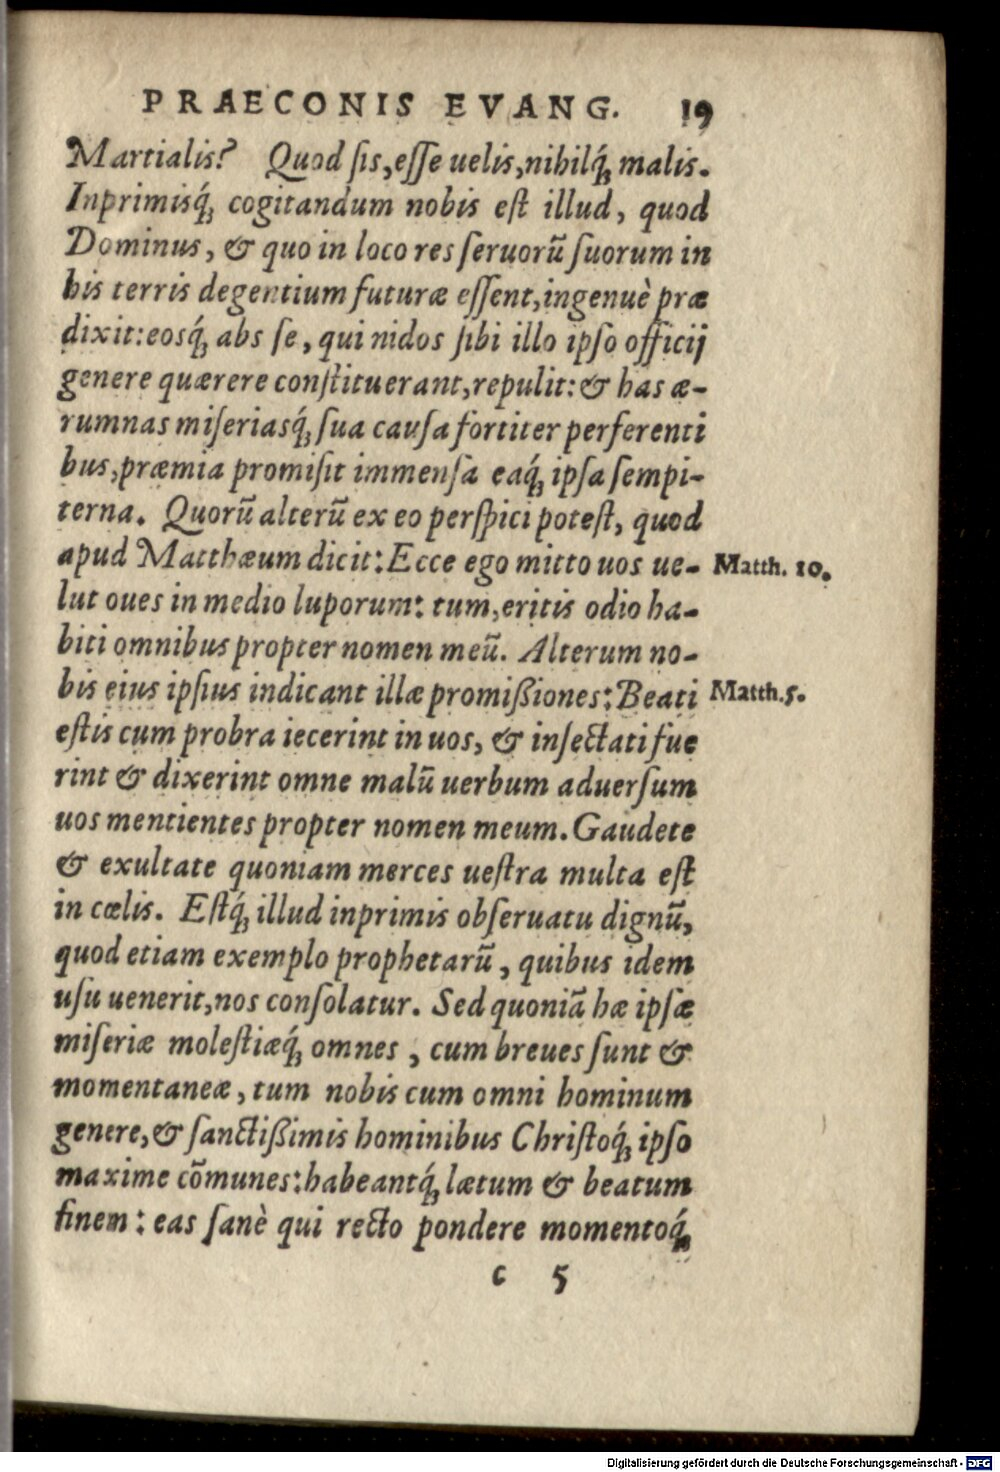 PRAECONIS EVANG. 19
Martialis? Quod ſis, eſſe uelis, nihilq́; malis.
Inprimisq́; cogitandum nobis eſt illud, quod
Dominus, & quo in loco res ſeruorũ ſuorum in
his terris degentium futuræ eſſent, ingenuè præ
dixit: eosq́; abs ſe, qui nidos ſibi illo ipſo officij
genere quærere conſtituerant, repulit: & has æ-
rumnas miſeriasq́; ſua cauſa fortiter perferenti
bus, præmia promiſit immenſa eaq́; ipſa ſempi-
terna. Quorũ alterũ ex eo perſpici poteſt, quod
apud Matthæum dicit: Ecce ego mitto uos ue- Matth. 10.
lut oues in medio luporum: tum, eritis odio ha-
biti omnibus propter nomen meũ. Alterum no-
bis eius ipſius indicant illæ promißiones: Beati Matth. 5.
eſtis cum probra iecerint in uos, & inſectati fue
rint & dixerint omne malũ uerbum aduerſum
uos mentientes propter nomen meum. Gaudete
& exultate quoniam merces ueſtra multa eſt
in cœlis. Eſtq́; illud inprimis obſeruatu dignũ,
quod etiam exemplo prophetarũ, quibus idem
uſu uenerit, nos conſolatur. Sed quoniã hæ ipſæ
miſeriæ moleſtiæq́; omnes, cum breues ſunt &
momentaneæ, tum nobis cum omni hominum
genere, & ſanctißimis hominibus Chriſtoq́; ipſo
maxime cõmunes: habeantq́; lætum & beatum
finem: eas ſanè qui recto pondere momentoq́;
c 5
Digitalisierung gefördert durch die Deutsche Forschungsgemeinschaft - DFG